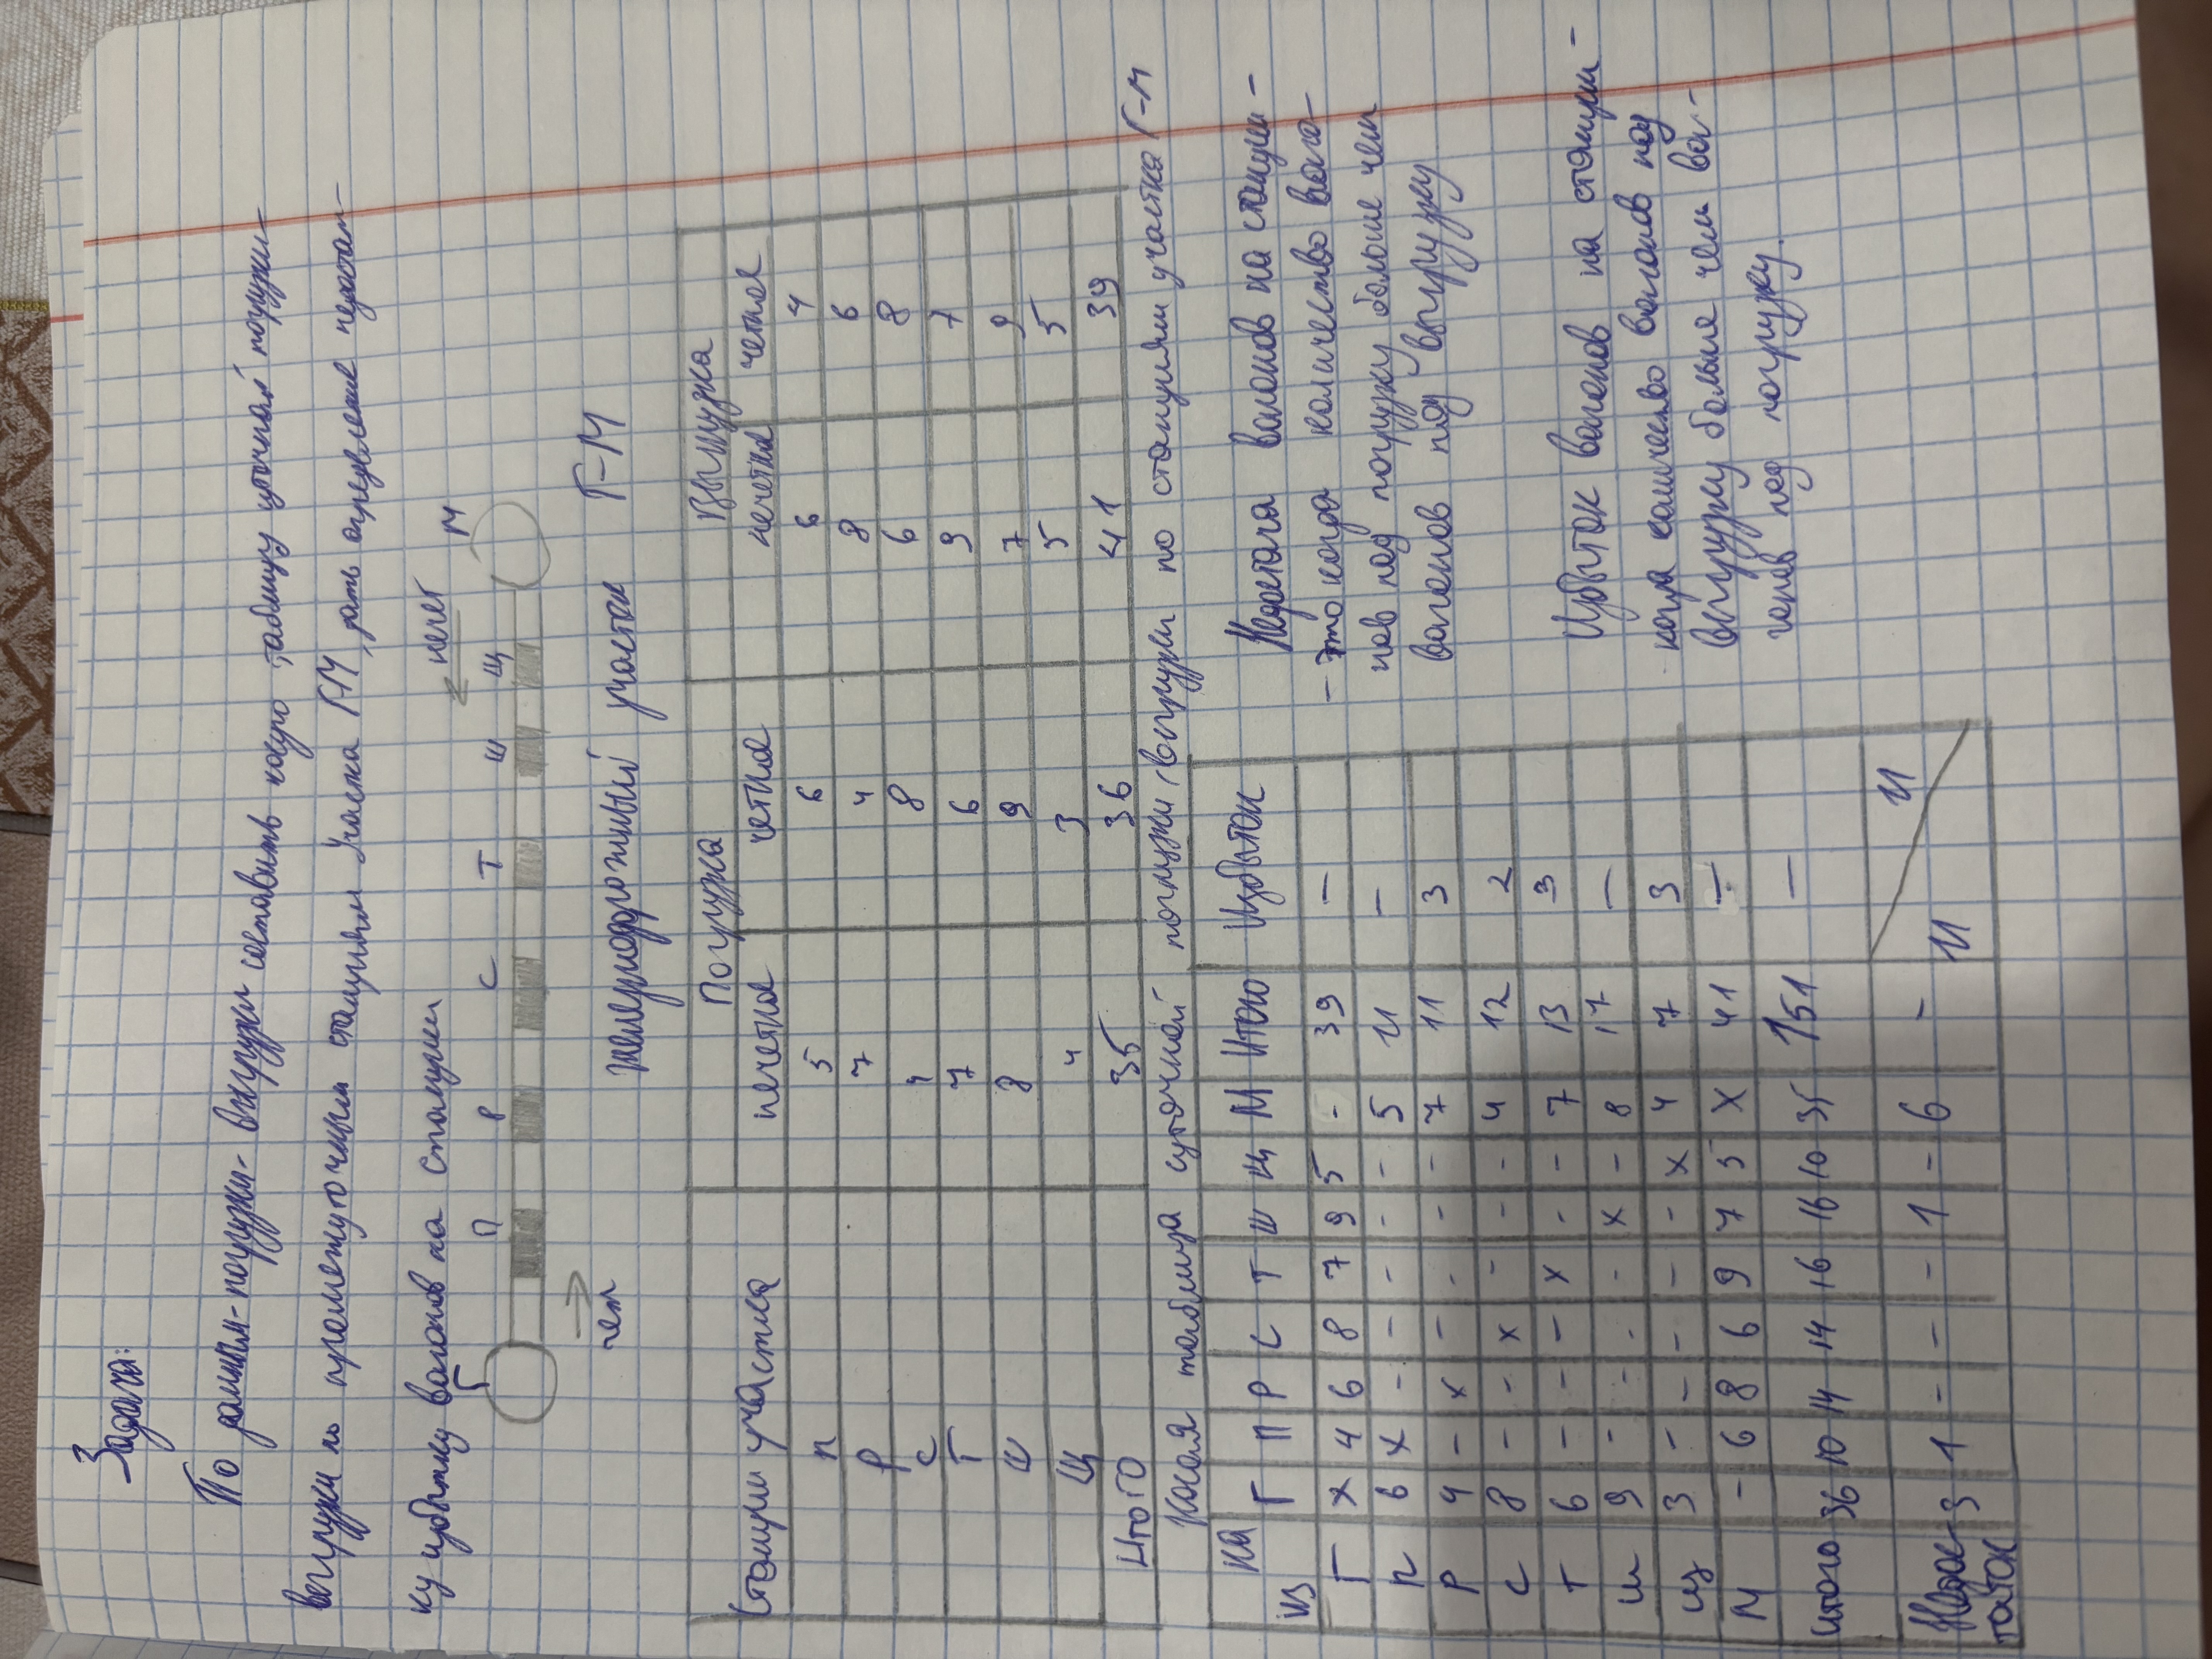 Задача:
По данным погрузки-выгрузки составить косую таблицу суточной погрузки-
выгрузки по промежуточным станциям участка Г-М, дать определение недостат-
ку избытку вагонов на станции
Г П Р С Т Ш Щ М
← нечет
чет →
железнодорожный участок Г-М
Станции участка Погрузка Выгрузка
нечетное четное нечетное четное
П 5 6 6 4
Р 7 4 8 6
С 4 8 6 8
Т 7 6 9 7
Ш 8 9 7 9
Щ 4 3 5 5
Итого 35 36 41 39
Косая таблица суточной погрузки, выгрузки по станциям участка Г-М
из на Г П Р С Т Ш Щ М Итого Избыток
Г х 4 6 8 7 9 5 - 39 -
П 6 х - - - - - 5 11 -
Р 4 - х - - - - 7 11 3
С 8 - - х - - - 4 12 2
Т 6 - - - х - - 7 13 3
Ш 9 - - - - х - 8 17 -
Щ 3 - - - - - х 4 7 3
М - 6 8 6 9 7 5 х 41 -
Итого 36 10 14 14 16 16 10 35 151 -
Недос-
таток 3 1 - - - 1 - 6 - 11 11
Недостача вагонов на станции -
- это когда количество ваго-
нов под погрузку больше чем
вагонов под выгрузку
Избыток вагонов на станции -
когда количество вагонов под
выгрузку больше чем ваг-
онов под погрузку.